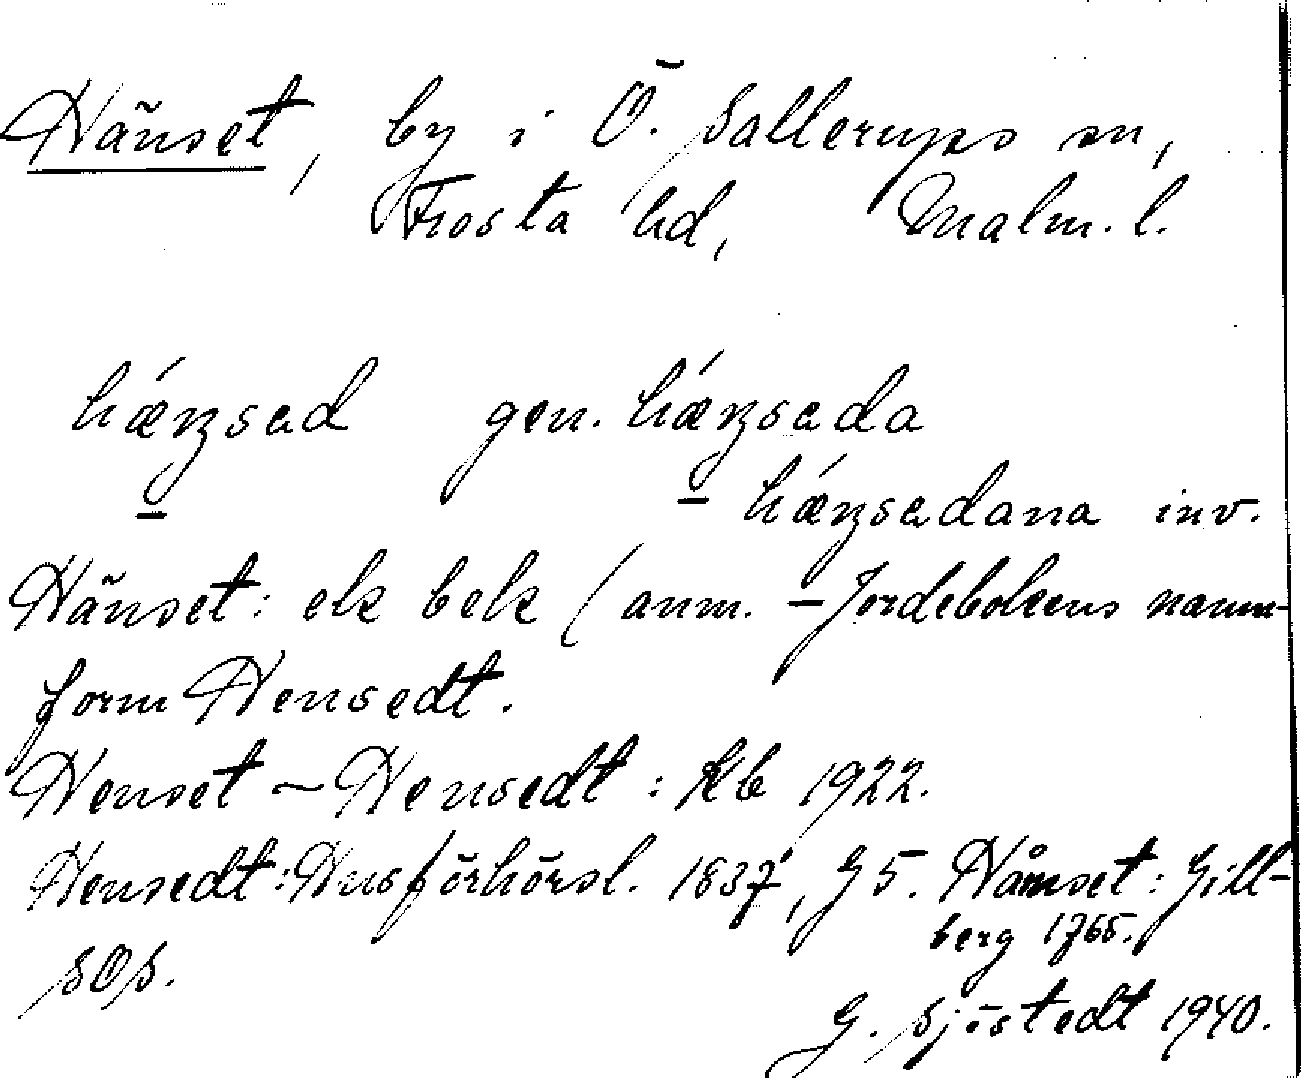 Hänset, by i Ö. Sallerups sn,
Frosta hd, Malm. l.
hǽnsad gen. hǽnsada
hǽnsadana inv.
Hänset: ek bek (anm. Jordebokens namn-
form Hensedt.
Henset – Hensedt: Kb 1922.
Hensedt: Husförhörsl. 1837, G5. Håmset: Gill-
berg 1765.
SOS.
G. Sjöstedt 1940.